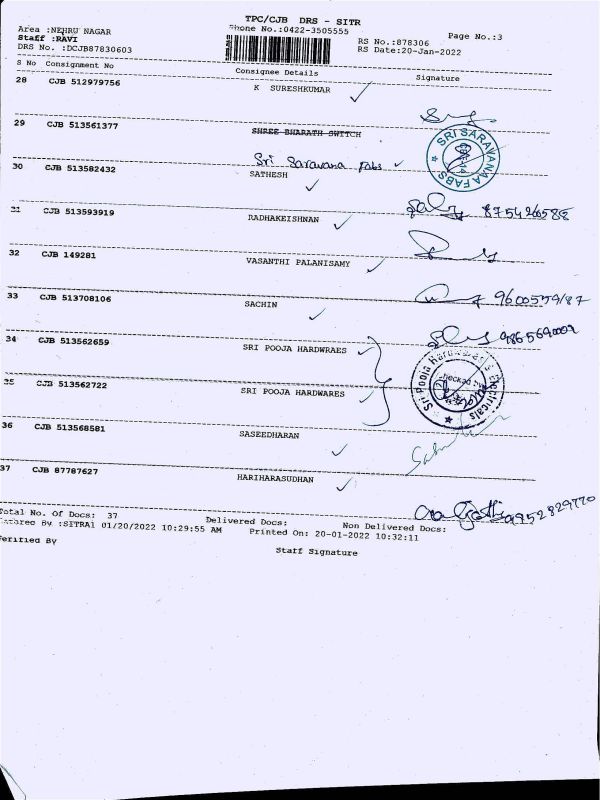 TPC/CJB DRS - SITR
Area :NEHRU NAGAR
Phone No.:0422-3505555
Page No.:3
Staff :RAVI
RS No.:878306
DRS No. :DCJB87830603
RS Date:20-Jan-2022
S No Consignment No Consignee Details Signature
28 CJB 512979756 K SURESHKUMAR ✓
29 CJB 513561377 SHREE BHARATH SWITCH
Sri Saravana Fabs ✓
SRI SARAVANAA FABS
30 CJB 513582432 SATHESH ✓
31 CJB 513593919 RADHAKEISHNAN ✓
32 CJB 149281 VASANTHI PALANISAMY ✓
33 CJB 513708106 SACHIN ✓
34 CJB 513562659 SRI POOJA HARDWRAES ✓
35 CJB 513562722 SRI POOJA HARDWARES ✓
Sri Pooja Hardwares & Electricals
36 CJB 513568581 SASEEDHARAN ✓
37 CJB 87787627 HARIHARASUDHAN ✓
9952829770
Total No. Of Docs: 37 Delivered Docs: Non Delivered Docs:
:SITRA1 01/20/2022 10:29:55 AM Printed On: 20-01-2022 10:32:11
Verified By
Staff Signature